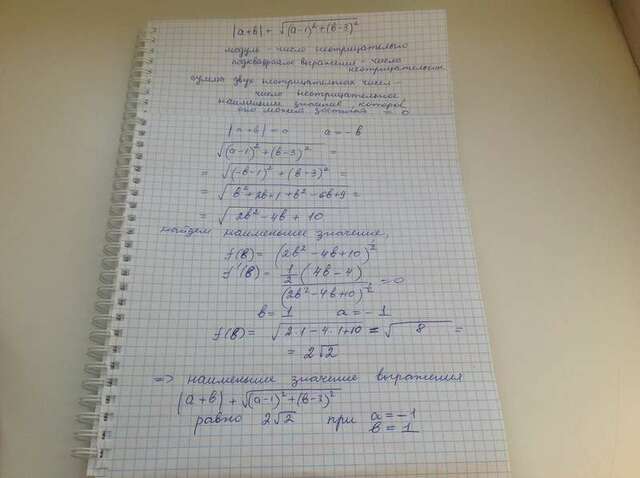 |a+b| + √(a-1)²+(b-3)²
модуль - число неотрицательно
подквадратное выражение - число
неотрицательное
сумма двух неотрицательных чисел
число неотрицательное
наименьшее значение, которое
оно может достигать = 0
|a+b| = 0 a = -b
√(a-1)²+(b-3)² =
= √(-b-1)²+(b-3)² =
= √b²+2b+1+b²-6b+9 =
= √2b²-4b+10
найдем наименьшее значение,
f(b) = (2b²-4b+10)^½
f'(b) = ½(4b-4)/(2b²-4b+10)^½ = 0
b = 1 a = -1
f(b) = √2·1-4·1+10 = √8 =
= 2√2
=> наименьшее значение выражения
|a+b| + √(a-1)²+(b-3)²
равно 2√2 при a = -1
b = 1